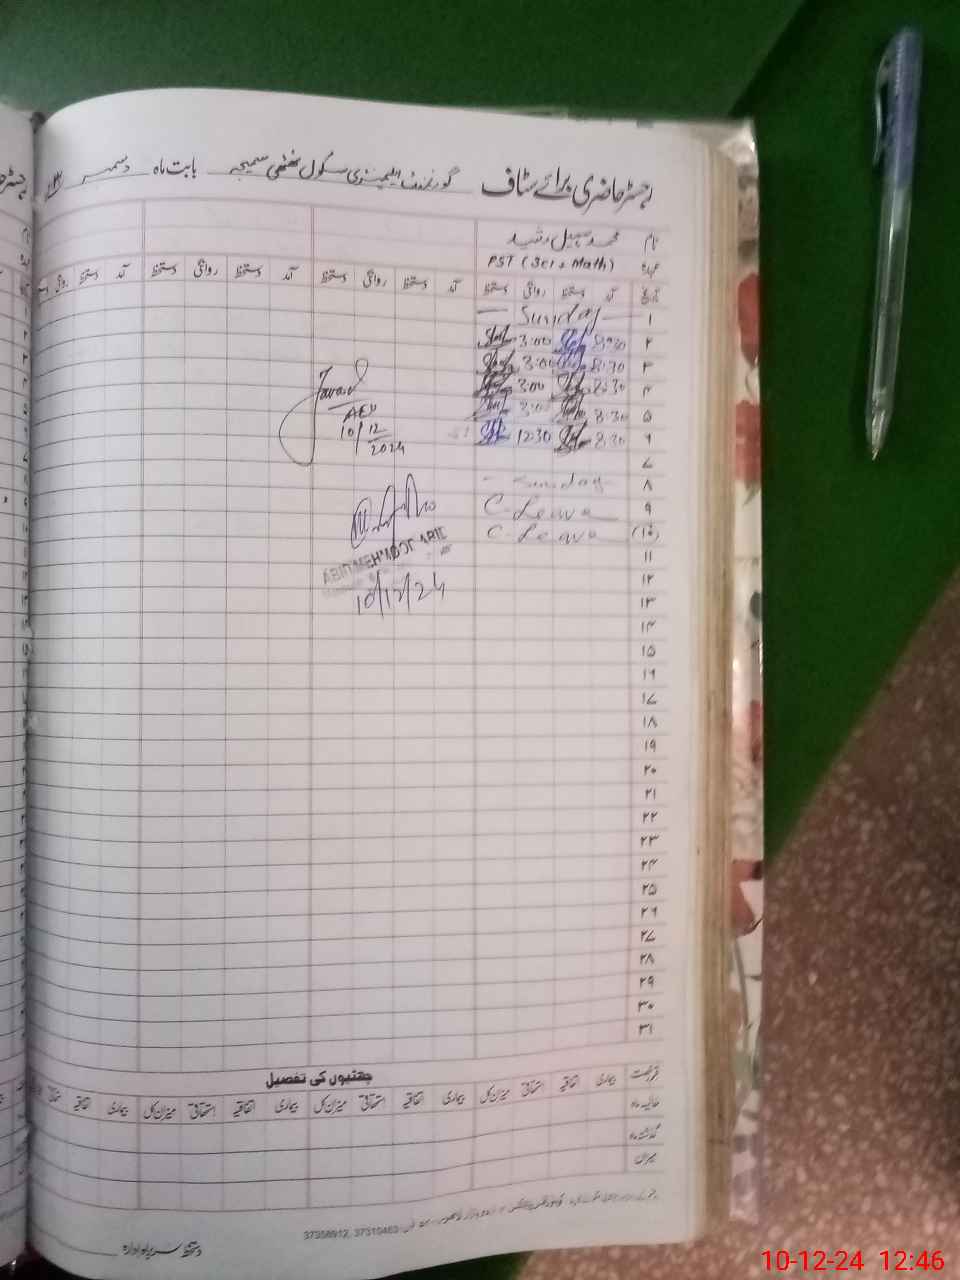 رجسٹر حاضری برائے سٹاف گورنمنٹ ایلیمنٹری سکول بابت ماہ دسمبر
نام محمد سہیل رشید
عہدہ PST (Sci + Math)
تاریخ آمد دستخط روانگی دستخط آمد دستخط روانگی دستخط آمد دستخط روانگی دستخط آمد دستخط روانگی دستخط
۱ — Sunday —
۲ 8:30 3:00
۳ 8:30 3:00
۴ 8:30 3:00
۵ 8:30 3:00
۶ 8:30 12:30
۷
۸ - Sunday -
۹ C-Leave
(۱۰) C-Leave
Javaid
AEO
10/12
2024
10/12/24
۱۱
۱۲
۱۳
۱۴
۱۵
۱۶
۱۷
۱۸
۱۹
۲۰
۲۱
۲۲
۲۳
۲۴
۲۵
۲۶
۲۷
۲۸
۲۹
۳۰
۳۱
چھٹیوں کی تفصیل
قسم رخصت بیماری اتفاقیہ استحقاقی میزان کل بیماری اتفاقیہ استحقاقی میزان کل بیماری اتفاقیہ استحقاقی میزان کل بیماری اتفاقیہ
حالیہ ماہ
گذشتہ ماہ
میزان
دستخط سربراہ ادارہ
10-12-24 12:46